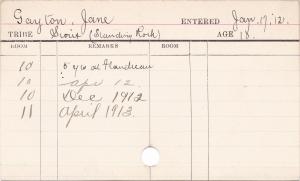 Gayton, Jane ENTERED Jan. 17, '12.
TRIBE Sioix (Standing Rock) AGE 18.
ROOM REMARKS ROOM
10 5 yrs at Flandreau
10 Apr 12
10 Dec 1912
11 April 1913.